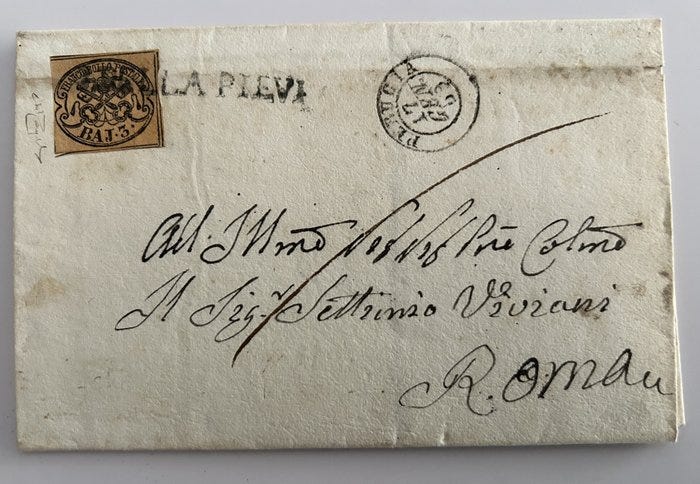 FRANCO BOLLO POSTALE
BAJ. 3.
LA PIEVI
PERUGIA
All' Illmo Sig Sig Pne Colmo
Il Sigr Settimio Viviani
Roma